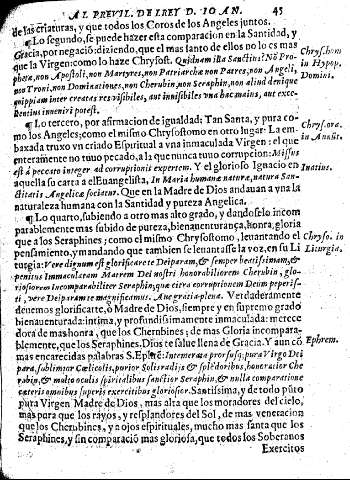 AL PREVIL. DE LREY D. IO AN. 45
de las criaturas, y que todos los Coros de los Angeles juntos.
¶ Lo segundo, se puede hazer esta comparacion en la Santidad, y
Gracia, por negació: diziendo, que el mas santo de ellos no lo es mas
que la Virgen: como lo haze Chrysost. Quidnam illa Sanctius? Nõ Pro-
phetæ, non Apostoli, non Martyres, non Patriarchæ non Patres, non Angeli,
non Troni, non Dominationes, non Cherubin, non Seraphin, non aliud denique
quippiam inter creatas res visibiles, aut invisibiles una hac maius, aut exce-
llentius inveniri potest.
¶ Lo tercero, por afirmacion de igualdad: Tan Santa, y pura co-
mo los Angeles; como el mismo Chrysostomo en otro lugar: La em-
baxada truxo vn criado Espiritual a vna inmaculada Virgen: el que
enteramente no tuuo pecado, a la que nunca tuuo corrupcion: Missus
est à peccato integer ad corruptionis expertem. Y el glorioso Ignacio en
aquella su carta a el Euangelista, In Maria humanæ naturæ, natura San-
ctitatis Angelicæ sociatur. Que en la Madre de Dios andauan a vna la
naturaleza humana con la Santidad y pureza Angelica.
¶ Lo quarto, subiendo a otro mas alto grado, y dandoselo incom
parablemente mas subido de pureza, bienauenturança, honra, gloria
que a los Seraphines; como el mismo Chrysostomo, leuantando el
pensamiento, y mandando que tambien se leuantasse la voz, en su Li
turgia: Vere dignum est glorificare te Deiparam, & semper beatissimam, &
penitus Immaculatam Matrem Dei nostri honorabiliorem Cherubin, glo-
riosiorem incomparabiliter Seraphin, quæ citra corruptionem Deum peperis-
ti, vere Deiparam te magnificamus. Aue gratia plena. Verdaderamente
deuemos glorificarte, ò Madre de Dios, siempre y en supremo grado
bienauenturada: intima, y profundissimamente inmaculada: merece
dora de mas honra, que los Cherubines; de mas Gloria incompara-
blemente, que los Seraphines. Dios te salue llena de Gracia. Y aun cõ
mas encarecidas palabras S. Ephrẽ: Intemerata prorsusq; pura Virgo Dei
para, sublimior Cælicolis, purior Solis radijs & splẽdoribus, honoratior Che
rubin, & multo oculis spiritalibus sanctior Seraphin, & nulla comparatione
cæteris omnibus superis exercitibus gloriosior. Santissima, y de todo puto
pura Virgen Madre de Dios, mas alta que los moradores del cielo,
mas pura que los rayos, y resplandores del Sol, de mas veneracion
que los Cherubines, y a ojos espirituales, mucho mas santa que los
Seraphines, y sin comparació mas gloriosa, que todos los Soberanos
Exercitos
Chrysostom
in Hypop.
Domini.
Chrysost. ora.
in Annũt.
Inatius.
Chryso. in
Liturgia.
Ephrem.